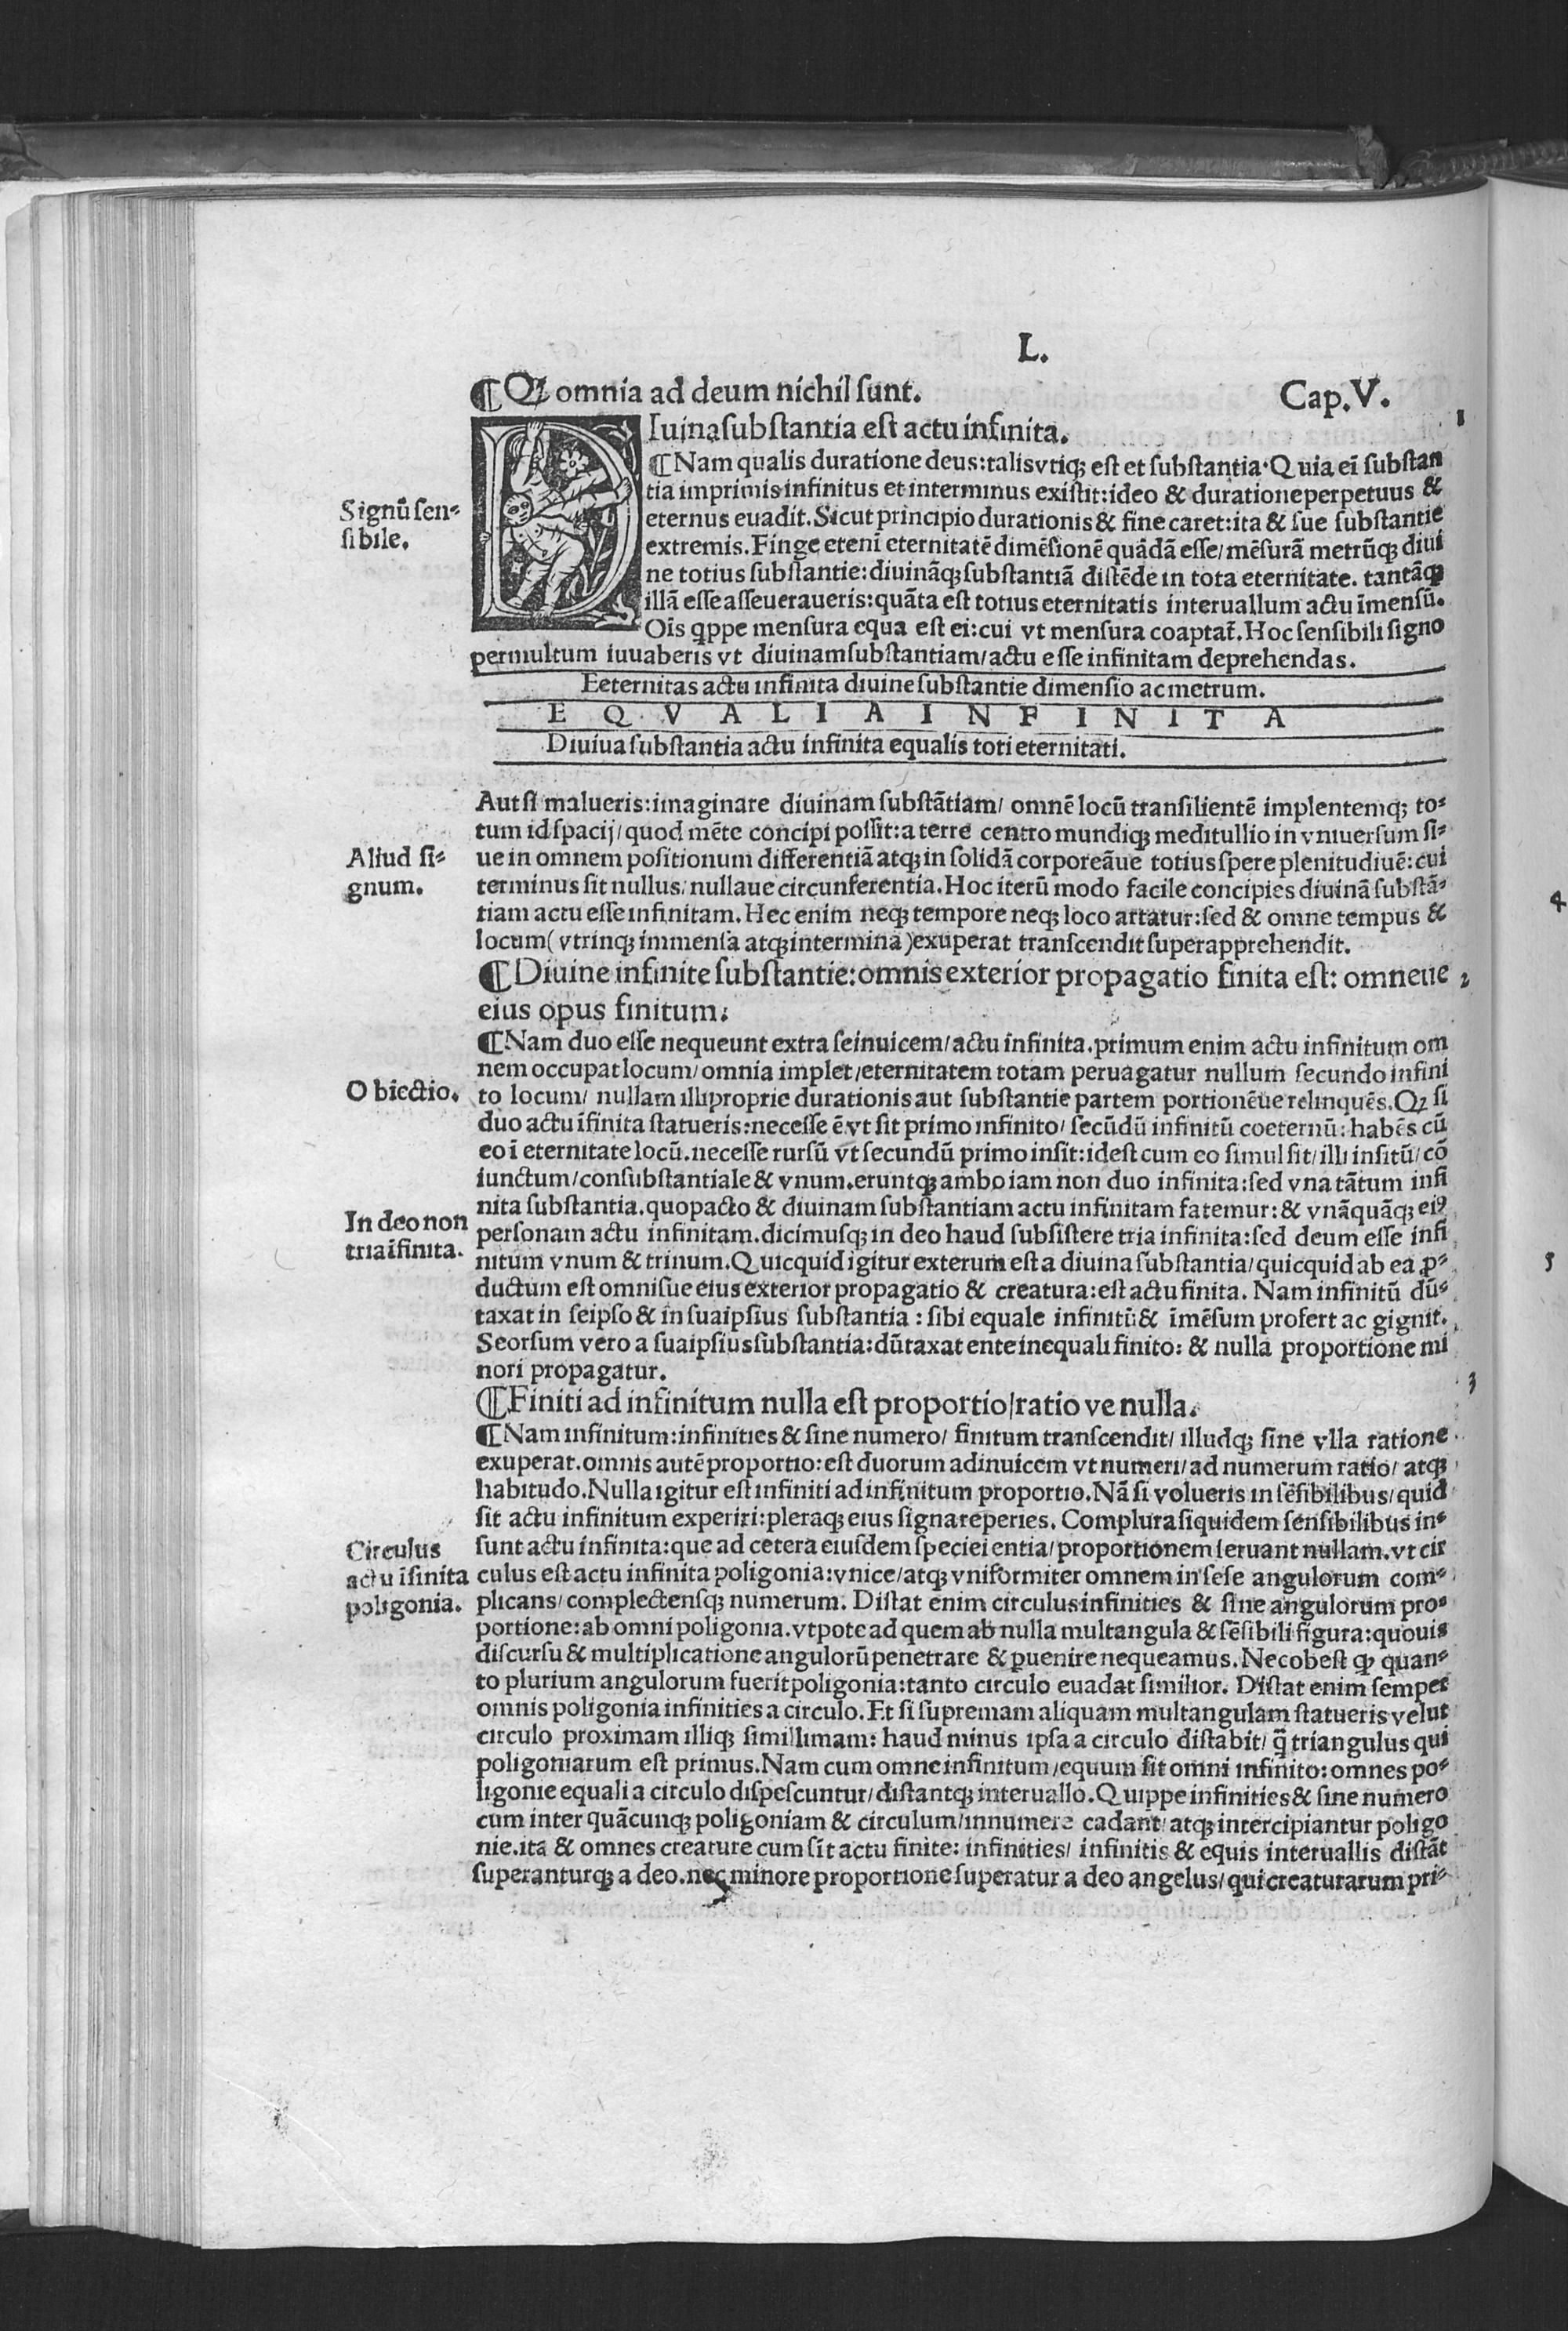 L.
¶Qꝫ omnia ad deum nichil sunt. Cap.V.
DIuina substantia est actu infinita. 1
¶Nam qualis duratione deus:talis vtiqꝫ est et substantia.Quia eī substan
tia imprimis infinitus et interminus existit:ideo & duratione perpetuus &
Signū sen-
sibile.
eternus euadit.Sicut principio durationis & fine caret:ita & sue substantie
extremis.Finge etenī eternitatē dimēsionē quādā esse/mēsurā metrūqꝫ diui
ne totius substantie:diuināqꝫ substantiā distēde in tota eternitate. tantāqꝫ
illā esse asseueraueris:quāta est totius eternitatis interuallum actu īmensū.
Oīs qꝓpe mensura equa est ei:cui vt mensura coaptat̄.Hoc sensibili signo
permultum iuuaberis vt diuinam substantiam/actu esse infinitam deprehendas.
Eeternitas actu infinita diuine substantie dimensio ac metrum.
E Q V A L I A I N F I N I T A
Diuiua substantia actu infinita equalis toti eternitati.
Aut si malueris:imaginare diuinam substātiam/ omnē locū transilientē implentemqꝫ to-
tum id spacij/quod mēte concipi possit:a terre centro mundiqꝫ meditullio in vniuersum si-
Aliud si-
gnum.
ue in omnem positionum differentiā atqꝫ in solidā corporeāue totius spere plenitudiuē:cui
terminus sit nullus/nullaue circunferentia.Hoc iterū modo facile concipies diuinā substā-
tiam actu esse infinitam.Hec enim neqꝫ tempore neqꝫ loco artatur:sed & omne tempus &
locum(vtrinqꝫ immensa atqꝫ intermina)exuperat transcendit superapprehendit.
¶Diuine infinite substantie:omnis exterior propagatio finita est: omneue 2
eius opus finitum.
¶Nam duo esse nequeunt extra seinuicem/actu infinita.primum enim actu infinitum om
nem occupat locum/omnia implet/eternitatem totam peruagatur nullum secundo infini
Obiectio.
to locum/ nullam illi proprie durationis aut substantie partem portionēue relinquēs.Qꝫ si
duo actu īfinita statueris:necesse ē vt sit primo infinito/secūdū infinitū coeternū:habēs cū
eo ī eternitate locū.necesse rursū vt secundū primo insit:idest cum eo simul sit/illi insitū/cō
iunctum/consubstantiale & vnum.eruntqꝫ ambo iam non duo infinita:sed vna tātum infi
nita substantia.quopacto & diuinam substantiam actu infinitam fatemur:& vnāquāqꝫ eiꝰ
In deo non
tria īfinita.
personam actu infinitam.dicimusqꝫ in deo haud subsistere tria infinita:sed deum esse infi
nitum vnum & trinum.Quicquid igitur exterum est a diuina substantia/quicquid ab ea ꝓ-
ductum est omnisue eius exterior propagatio & creatura:est actu finita. Nam infinitū dū-
taxat in seipso & in suaipsius substantia : sibi equale infinitū & īmēsum profert ac gignit.
Seorsum vero a suaipsius substantia:dūtaxat ente inequali finito: & nulla proportione mi
nori propagatur.
¶Finiti ad infinitum nulla est proportio/ratio ve nulla. 3
¶Nam infinitum:infinities & sine numero/ finitum transcendit/illudqꝫ sine vlla ratione
exuperat.omnis autē proportio:est duorum adinuicem vt numeri/ad numerum ratio/atqꝫ
habitudo.Nulla igitur est infiniti ad infinitum proportio.Nā si volueris in sēsibilibus/quid
sit actu infinitum experiri:pleraqꝫ eius signa reperies. Complura siquidem sensibilibus in-
Circulus
actu īfinita
poligonia.
sunt actu infinita:que ad cetera eiusdem speciei entia/proportionem seruant nullam.vt cir
culus est actu infinita poligonia:vnice/atqꝫ vniformiter omnem in sese angulorum com-
plicans/complectensqꝫ numerum. Distat enim circulus infinities & sine angulorum pro-
portione:ab omni poligonia.vtpote ad quem ab nulla multangula & sēsibili figura:quouis
discursu & multiplicatione angulorū penetrare & ꝑuenire nequeamus.Nec obest qꝫ quan-
to plurium angulorum fuerit poligonia:tanto circulo euadat similior. Distat enim semper
omnis poligonia infinities a circulo.Et si supremam aliquam multangulam statueris velut
circulo proximam illiqꝫ simillimam: haud minus ipsa a circulo distabit/ q̄ triangulus qui
poligoniarum est primus.Nam cum omne infinitum/equum sit omni infinito:omnes po-
ligonie equali a circulo dispescuntur/distantqꝫ interuallo.Quippe infinities & sine numero
cum inter quācunqꝫ poligoniam & circulum/innumere cadant/atqꝫ intercipiantur poligo
nie.ita & omnes creature cum sīt actu finite: infinities/ infinitis & equis interuallis distāt
superanturqꝫ a deo.nec minore proportione superatur a deo angelus/qui creaturarum pri-
4
5